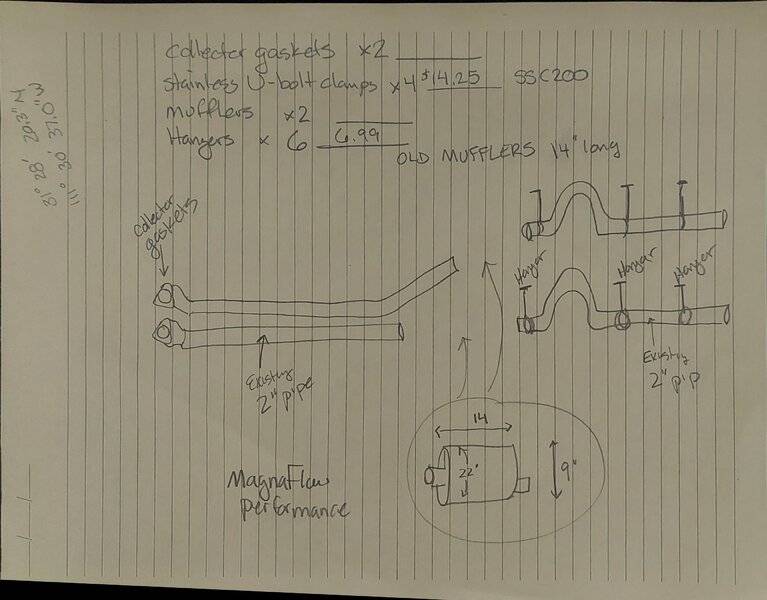 collector gaskets x2
stainless U-bolt clamps x4 $14.25 SSC200
mufflers x2
Hangers x 6 6.99
OLD MUFFLERS 14" long
31° 28' 20.3" N
111° 30' 37.0" W
collector
gaskets
Hanger
Hanger
Hanger
Existing
2" pipe
Existing
2" pip
14
22"
9"
Magnaflow
performance